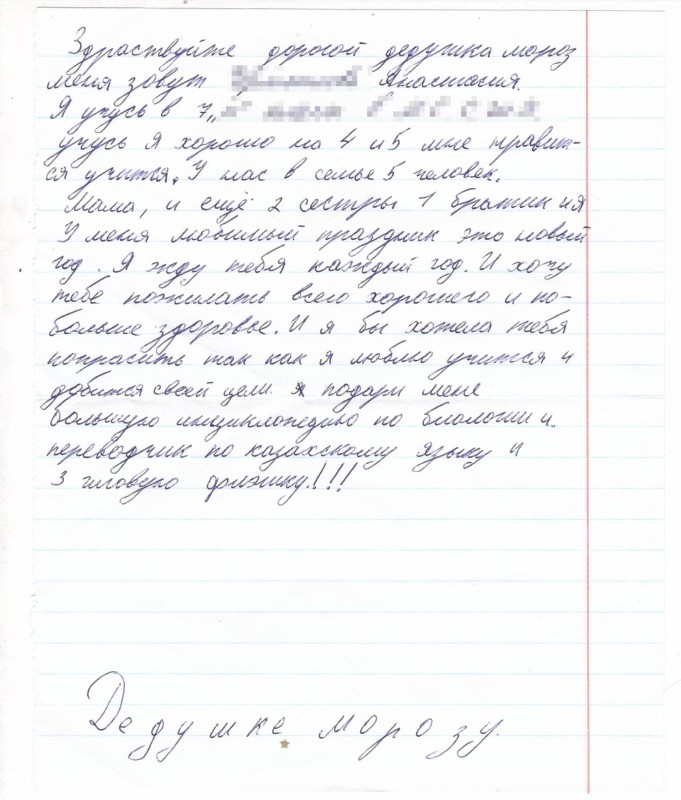 Здраствуйте дорогой дедушка мороз
меня зовут Анастасия.
Я учусь в 7„
учусь я хорошо на 4 и 5 мне нравит-
ся учится. У нас в семье 5 человек.
Мама, и ещё 2 сестры 1 братик и я
У меня любимый праздник это новый
год. Я жду тебя каждый год. И хочу
тебе пожилать всего хорошего и по-
больше здоровье. И я бы хотела тебя
попрасить так как я люблю учится и
добится своей цели. я подари мене
большую инциклопедию по биологии и.
переводчик по казахскому языку и
3 гиговую флэшку.!!!
Дедушке морозу.